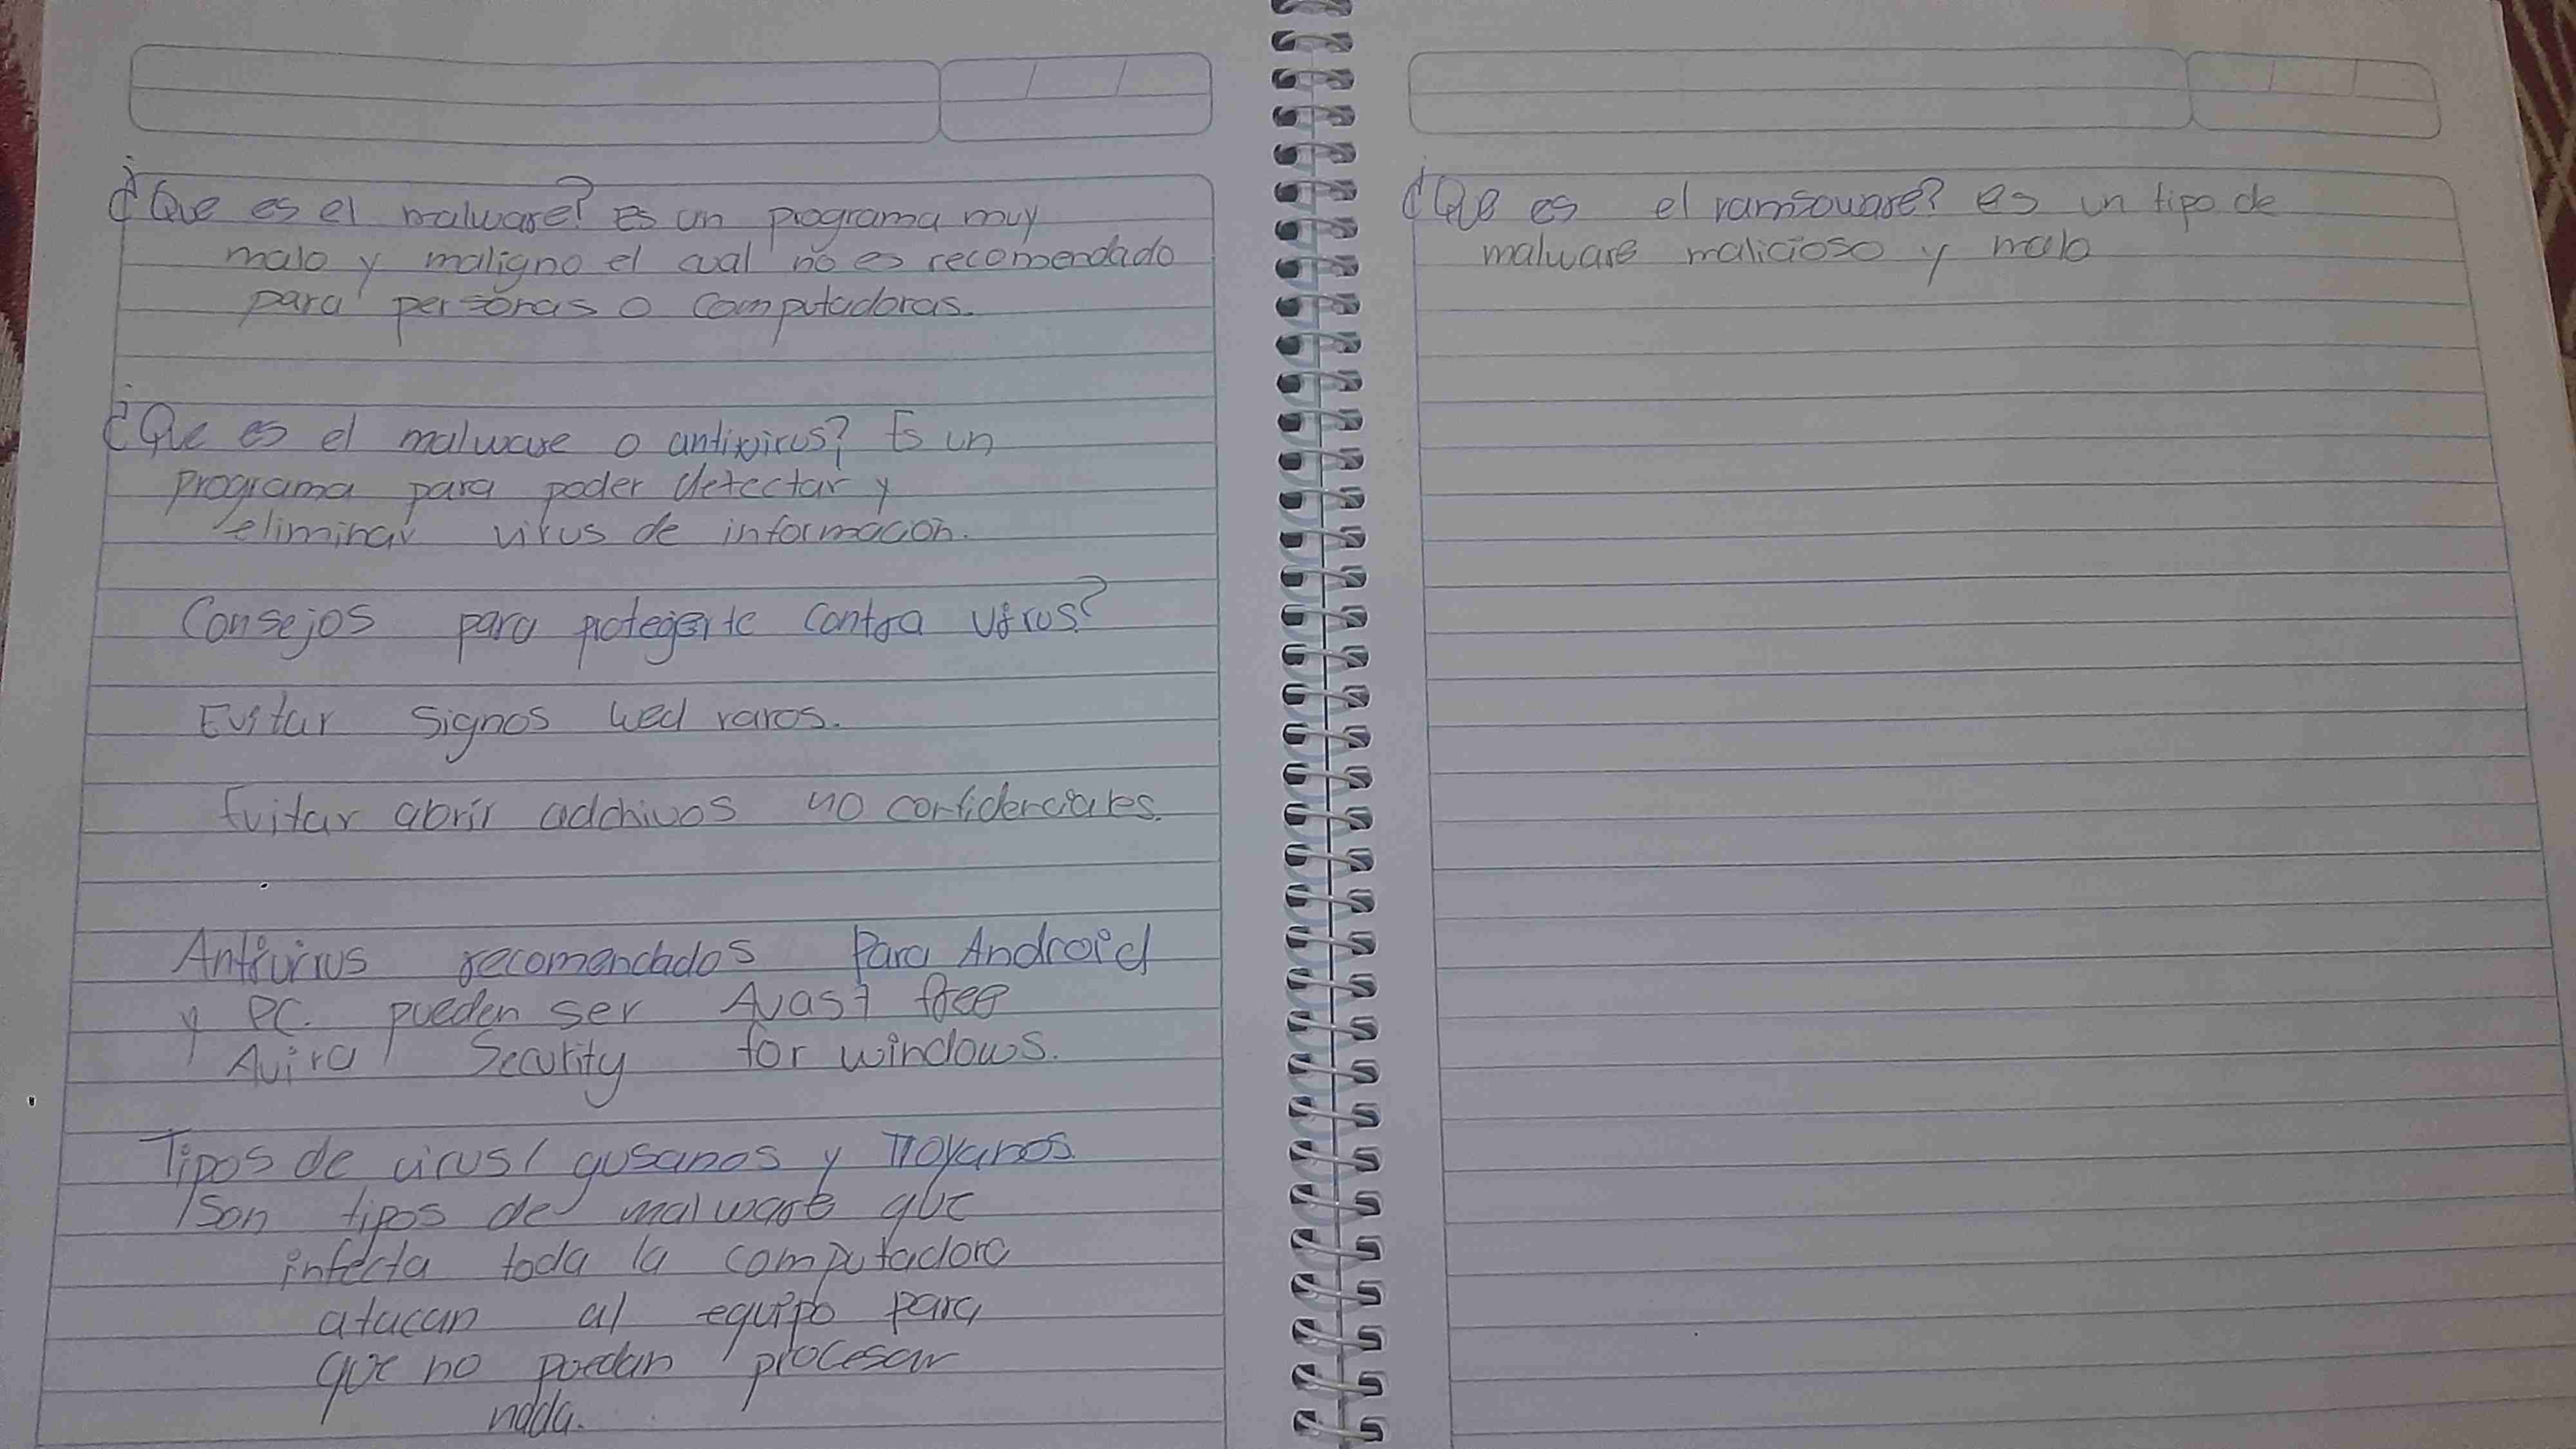 ¿Que es el malware? Es un programa muy
malo y maligno el cual no es recomendado
para personas o computadoras.
¿Que es el malware o antivirus? Es un
programa para poder detectar y
eliminar virus de información.
Consejos para protegerte contra virus?
Evitar signos wed raros.
Evitar abrir adchivos no confidenciales.
Antivirus recomendados Para Android
y PC. pueden ser Avast free
Avira Security for windows.
Tipos de virus/ gusanos y Troyanos.
Son tipos de malware que
infecta toda la computadora
atacan al equipo para
que no puedan procesar
nada.
¿Que es el ramsoware? es un tipo de
malware malicioso y malo